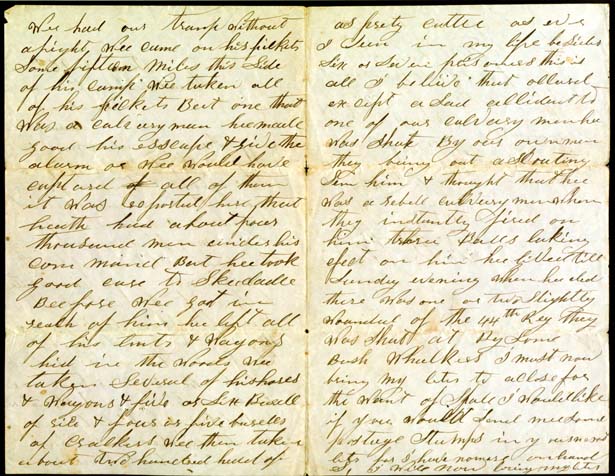 Wee had our tramp without
a fight, wee came on his pickets
Some fifteen miles this Side
of his camp wee taken all
of his pickets But one that
was a calvery man hee made
good his esscape & give the
alarm or wee would have
captured all of them
it was reported here that
heath had about four
thousand men undes his
com mand But hee took
good care to Skedadle
Beefore wee got in
reach of him hee left all
of his tents & Wagons
hid in the woods wee
taken Several of his horses
& Waygons & five or Six Bisell
of & four or five busells
of Crackers wee then taken
about two hundred head of
as prety cattle as eve
I Seen in my life besides
Six or Seven prisoners this is
all I beleive that
except a Sad accident to
one of our calvery men hee
was Shot By our own men
they being out a Scouting
Seen him & thought that hee
was a rebell calvery man when
they instantly fired on
him three Balls taking
efect on him hee lived till
Sunday evening when hee died
there was one or two Slightly
wounded of the 44th Reg they
was Shot at By Some
Bush Whackers I must now
bring my leter to a close for
the want of Spase I would like
if you would Send mee Some
postage Stamps in your
leter for I have nomore on hand
I will now bring my leter